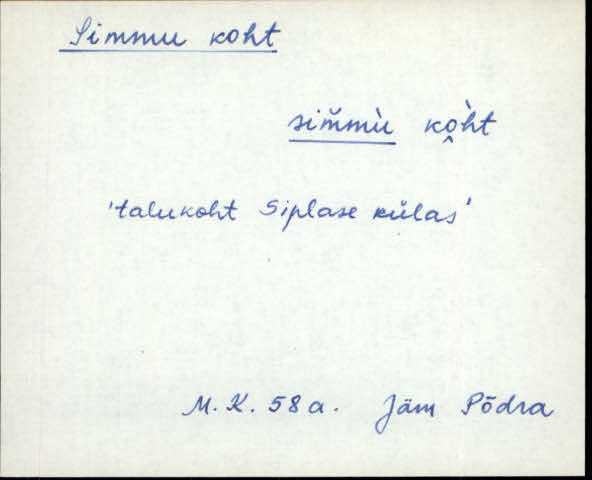 Simmu koht
sim̆mù kò̭ht
'talukoht Siplase külas'
M.K. 58 a. Jäm Põdra